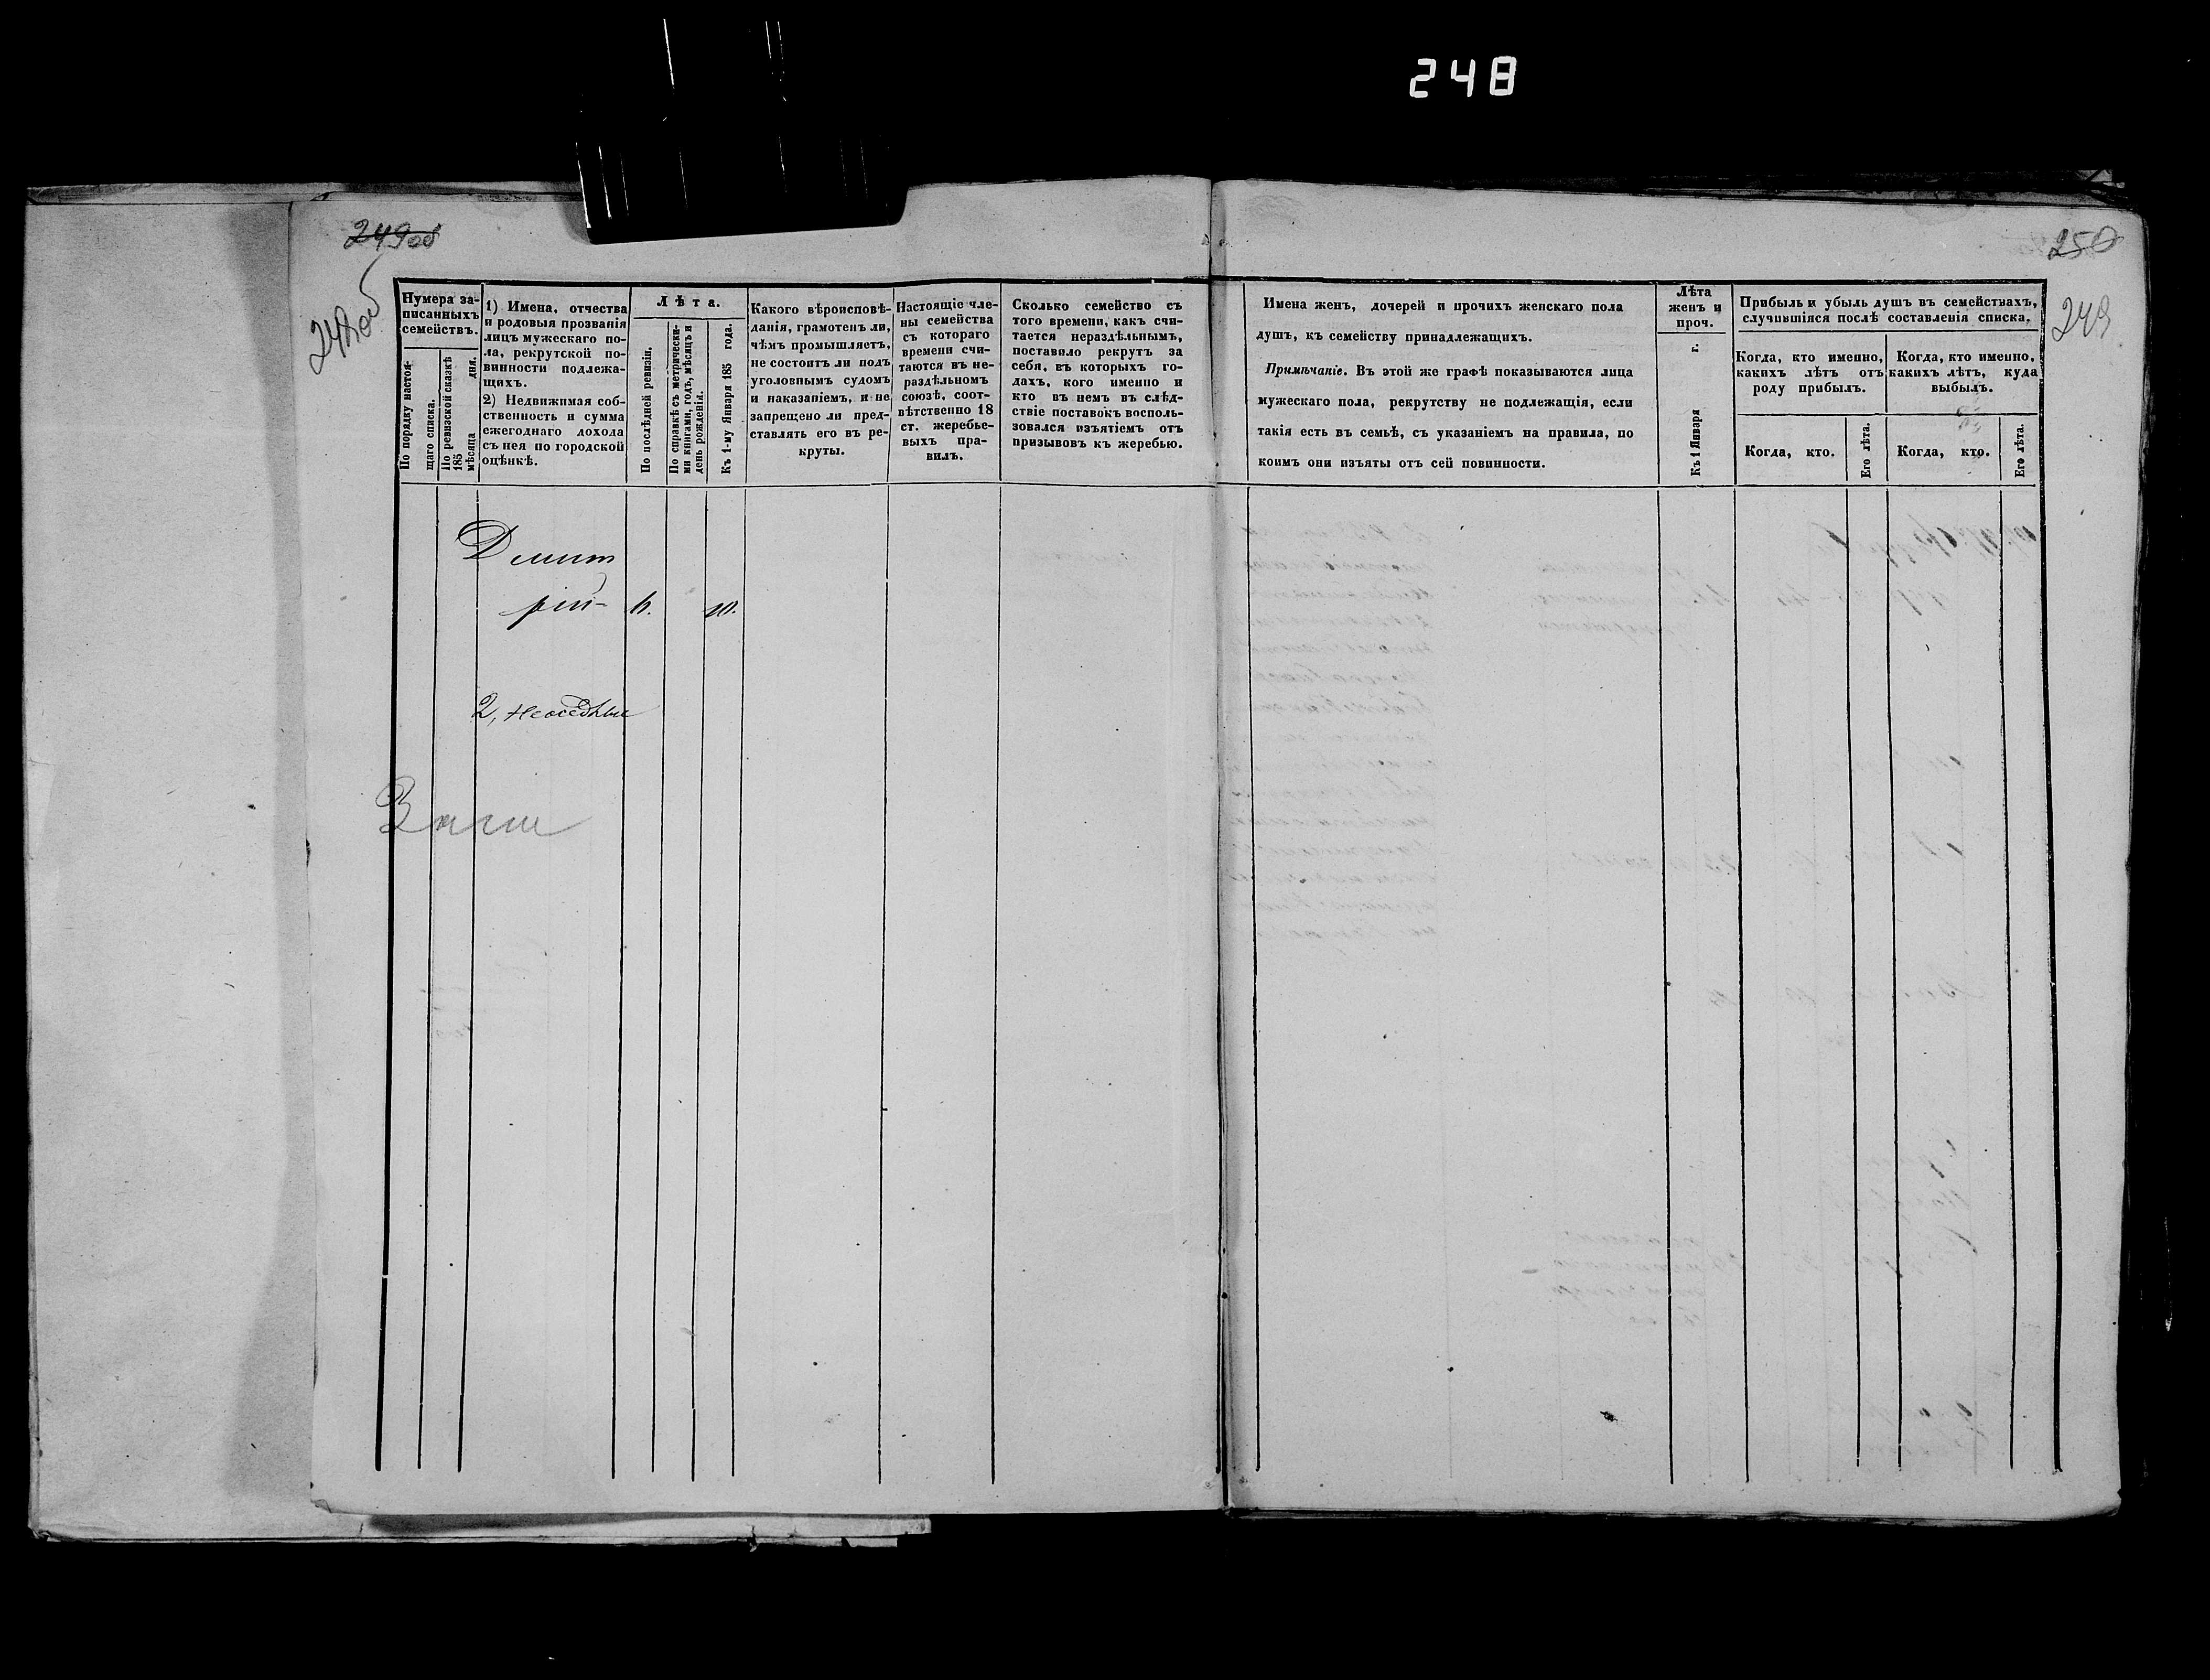 248
249об
248об
250
249
Нумера за-
писанныхъ
семействъ.
По порядку настоя-
щаго списка.
По ревизской сказкѣ
185 дня.
мѣсяца
1) Имена, отчества
и родовыя прозванія
лицъ мужескаго по-
ла, рекрутской по-
винности подлежа-
щихъ.
2) Недвижимая соб-
ственность и сумма
ежегоднаго дохода
съ нея по городской
оцѣнкѣ.
Лѣта.
По послѣдней ревизіи.
По справкѣ съ метрически-
ми книгами, годъ, мѣсяцъ и
день рожденія.
Къ 1-му Января 185 года.
Какого вѣроисповѣ-
данія, грамотенъ ли,
чѣмъ промышляетъ,
не состоитъ ли подъ
уголовнымъ судомъ
и наказаніемъ, и не
запрещено ли пред-
ставлять его въ ре-
круты.
Настоящіе чле-
ны семейства
съ котораго
времени счи-
таются въ не-
раздѣльномъ
союзѣ, соот-
вѣтственно 18
ст. жеребье-
выхъ пра-
вилъ.
Сколько семейство съ
того времени, какъ счи-
тается нераздѣльнымъ,
поставило рекрутъ за
себя, въ которыхъ го-
дахъ, кого именно и
кто въ немъ въ слѣд-
ствіе поставокъ восполь-
зовался изъятіемъ отъ
призывовъ къ жеребью.
Имена женъ, дочерей и прочихъ женскаго пола
душъ, къ семейству принадлежащихъ.
Примѣчаніе. Въ этой же графѣ показываются лица
мужескаго пола, рекрутству не подлежащія, если
такія есть въ семьѣ, съ указаніемъ на правила, по
коимъ они изъяты отъ сей повинности.
Лѣта
женъ и
проч.
Къ 1 Января г.
Прибыль и убыль душъ въ семействахъ,
случившіяся послѣ составленія списка.
Когда, кто именно,
какихъ лѣтъ отъ
роду прибылъ.
Когда, кто именно,
какихъ лѣтъ, куда
выбылъ.
Когда, кто.
Его лѣта.
Когда, кто.
Его лѣта.
Димит
рій
2, неоседлые